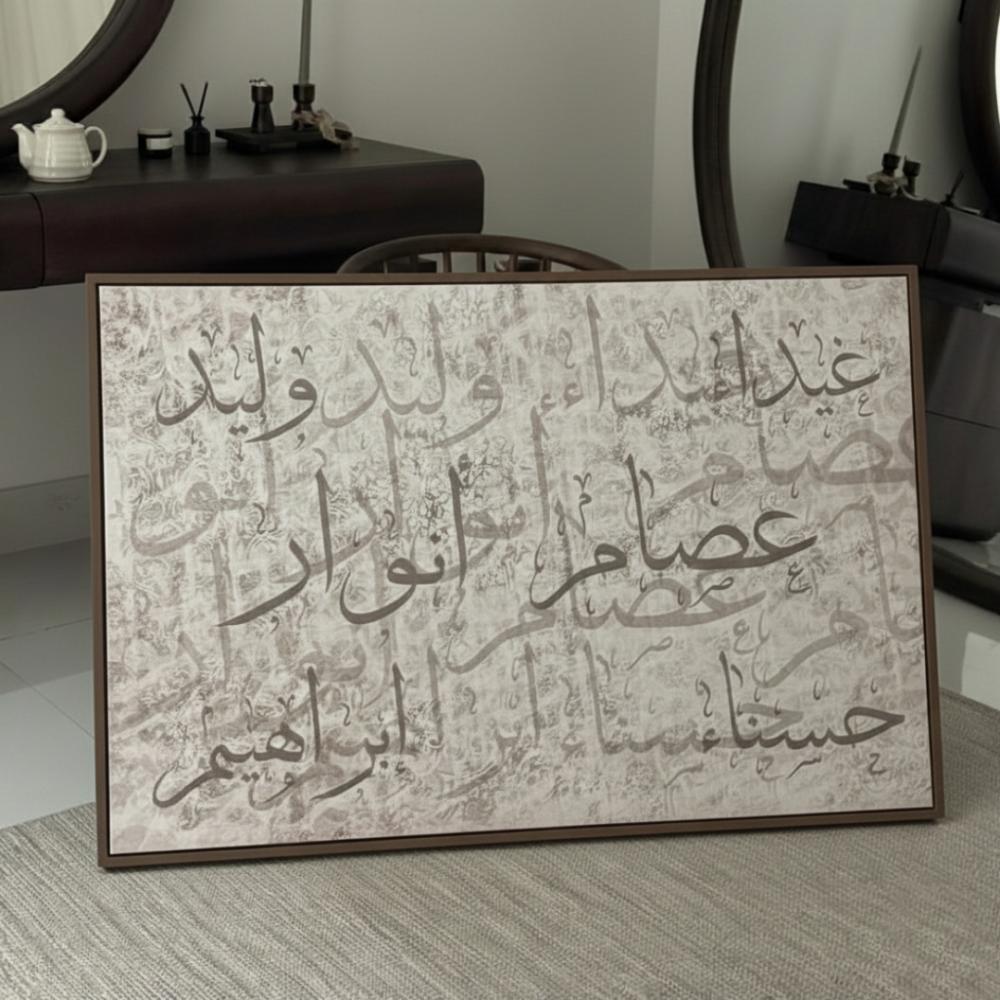 غيداء وليد
عصام انوار
حسناء ابراهيم